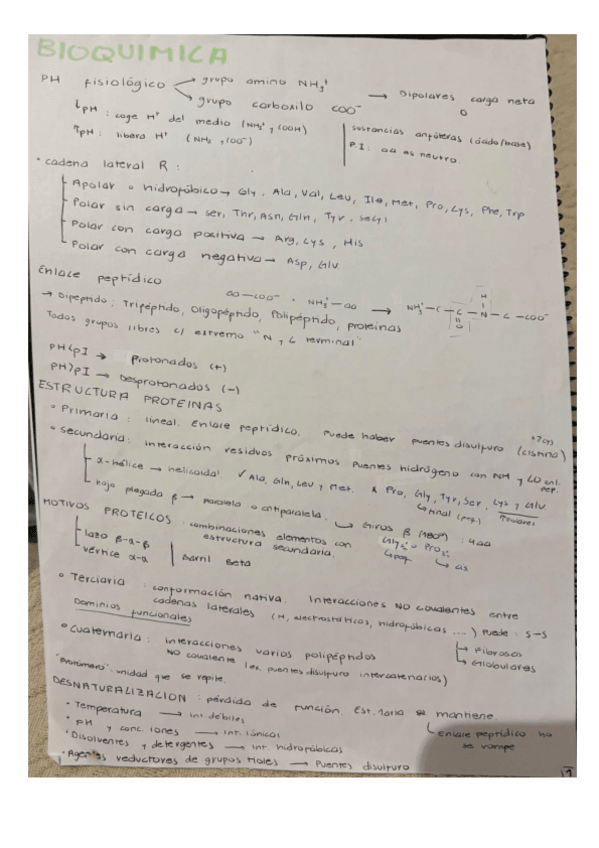 BIOQUIMICA
PH fisiológico → grupo amino NH3+
→ grupo carboxilo COO-
→ Dipolares carga neta 0
↓PH: coge H+ del medio (NH3+, COOH)
↑PH: libera H+ (NH2, COO-)
sustancias anfóteras (ácido/base)
P.I: aa es neutro.
• cadena lateral R:
Apolar o hidrofóbico → Gly, Ala, Val, Leu, Ile, Met, Pro, Cys, Phe, Trp
Polar sin carga → Ser, Thr, Asn, Gln, Tyr, Secys
Polar con carga positiva → Arg, Lys, His
Polar con carga negativa → Asp, Glu
Enlace peptídico
aa-COO- + NH3+-aa → NH3+-C-C-N-C-COO-
O H
→ Dipeptido; Tripéptido, Oligopéptido, Polipéptido, proteinas
Todos grupos libres c/ extremo "N y C terminal"
PH<pI → Protonados (+)
PH>pI → Desprotonados (-)
ESTRUCTURA PROTEINAS
• Primaria: lineal. Enlace peptidico. Puede haber puentes disulfuro (cistina)
• Secundaria: interacción residuos próximos puentes hidrógeno con NH y CO enl. pep.
α-hélice → helicoidal ✓ Ala, Gln, Leu y Met. x Pro, Gly, Tyr, Ser, Lys y Glu
hoja plegada β → paralela o antiparalela. ↳ Giros β (180º): 4aa
Gly2 o Pro3
↳ cis
MOTIVOS PROTEICOS: combinaciones elementos con
estructura secundaria.
lazo β-α-β
vértice α-α
Barril Beta
• Terciaria: conformación nativa. Interacciones NO covalentes entre
cadenas laterales (H, electrostáticos, hidrofóbicas ...) Puede: S-S
Dominios funcionales
→ Fibrosos
→ Globulares
• Cuaternaria: interacciones varios polipéptidos
NO covalente (ex. puentes disulfuro intercatenarios)
"Protómero": unidad que se repite.
DESNATURALIZACION: pérdida de función. Est. 1aria se mantiene.
↳ Enlace peptidico no
se rompe
• Temperatura → Int. débiles
• PH y conc. iones → Int. iónicas
• Disolventes y detergentes → Int. hidrofóbicas
• Agentes reductores de grupos tioles → Puentes disulfuro
1